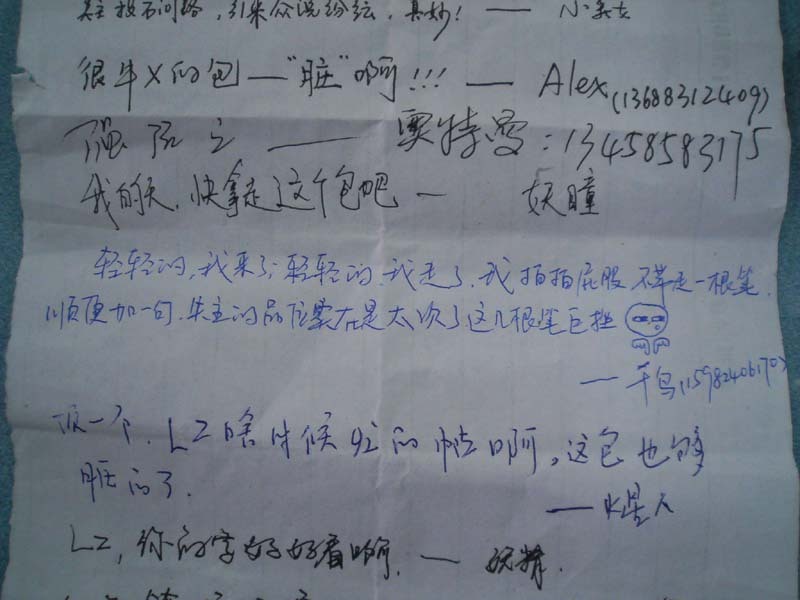 失主投石问路，引来众说纷纭，真妙！——小
很牛X的包—“脏”啊!!!——Alex(13688312409)
强烈之——奥特曼：13458583175
我的天，快拿走这个包吧—妖瞳
轻轻的，我来了；轻轻的，我走了，我拍拍屁股不带走一根笔，
顺便加一句，失主的品位实在是太次了，这几根笔巨挫
——千鸟(15982406170)
顶一个，LZ啥时候发的帖啊，这包也够
脏的了。
——火星人
LZ，你的字好好看啊，—妖精.